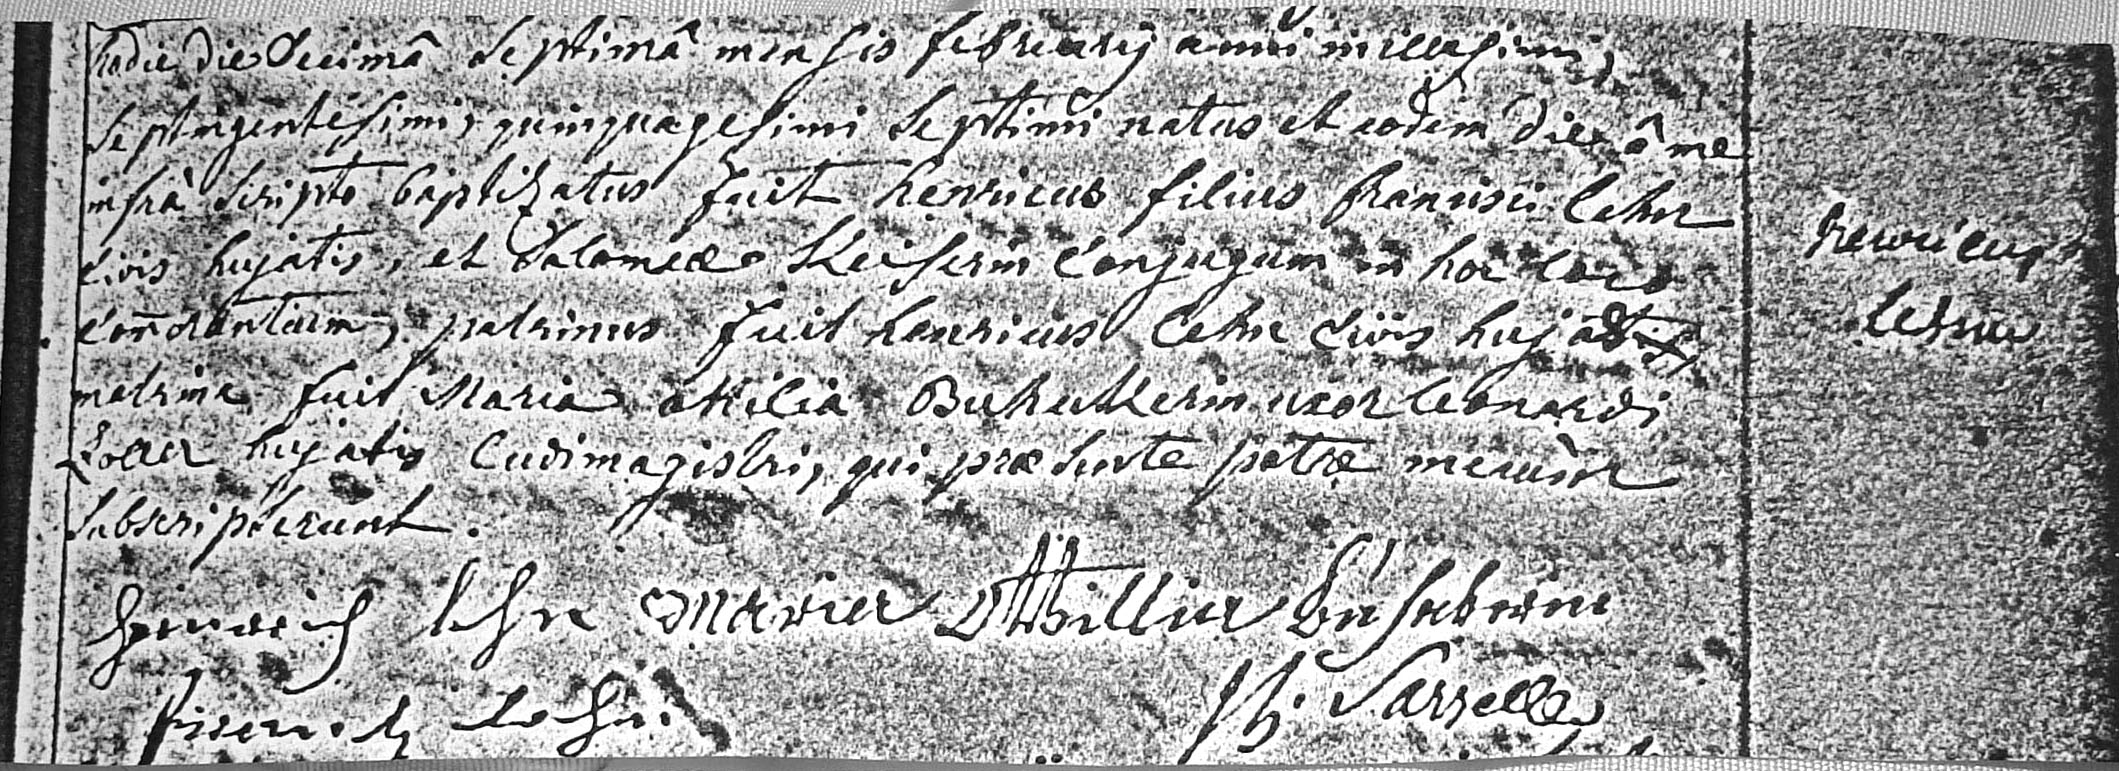 hodie die decimâ septimâ mensis februarij anni millesimi,
septingentesimi, quinquagesimi septimi natus et eodem die â me
infrâ scripto baptizatus fuit henricus filius francisci lehn
civis hujatis, et Salomeæ Keiserin conjugum in hoc loco
commorantium, patrinus fuit henricus Lehn civis hujatis,
matrina fuit Maria ottilia uxor leonardi
hujatis ludimagistri, qui præsente patre mecum
subscripserunt.
henricus
lehn
Heinrich lehn Maria Ottillia